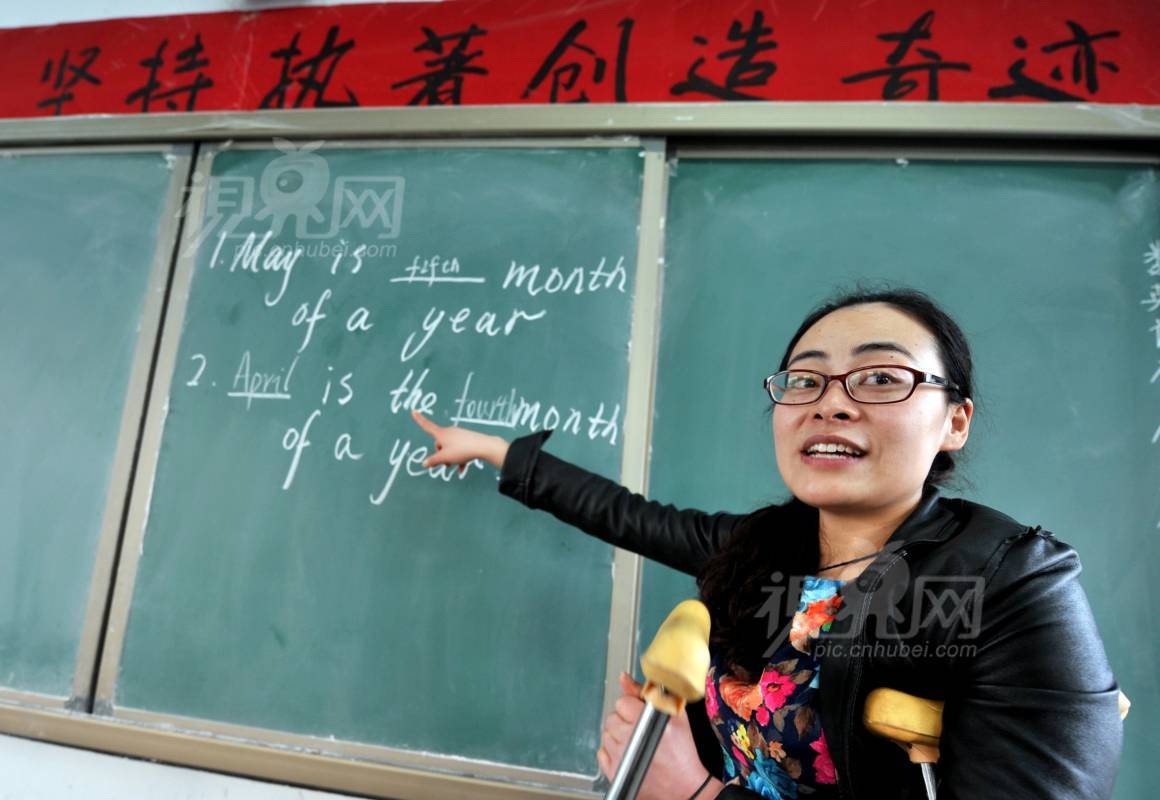 坚持执著创造奇迹
视界网
pic.cnhubei.com
1. May is fifth month
of a year
2. April is the fourth month
of a year.
视界网
pic.cnhubei.com